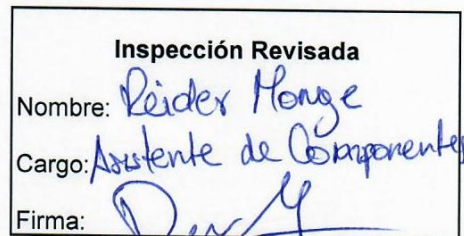 Inspección Revisada
Nombre: Reider Monge
Cargo: Asistente de Componentes
Firma: